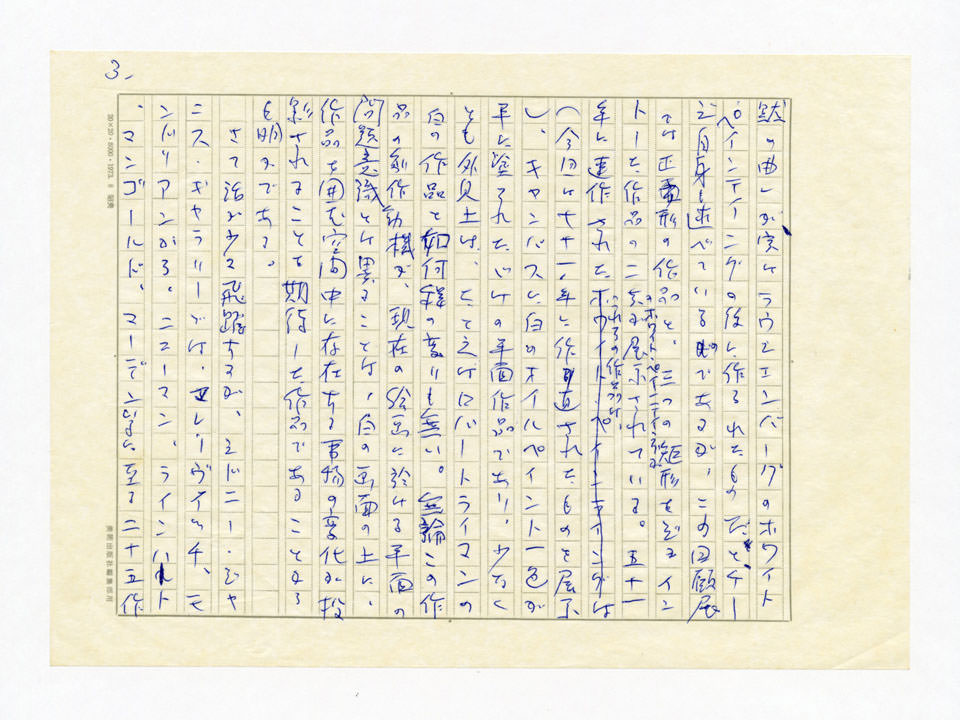 3.
黙の曲」が実はラウシェンバーグのホワイト
ペインティングの後に作られたものだとケー
ジ自身も述べているのであるが、この回顧展
では正方形の作品と、三つの矩形をジョイン
トした作品の二点が展示されている。五十一
年に連作されたホワイト・ペインティングが
これらの作品は、
ホワイトペインティングは
(今回は六十八年に作り直されたものを展示
し、キャンバスに白のオイルペイント一色が
平に塗られただけの平面作品であり、少なく
とも外見上は、たとえばロバートライマンの
白の作品と如何程の変りも無い。無論この作
品の制作動機が、現在の絵画に於ける平面の
問題意識とは異ることは、白の画面の上に、
作品を囲む空間中に存在する事物の変化が投
影されることを期待した作品であることから
も明かである。
さて話が少々飛躍するが、シドニー・ジャ
ニス・ギャラリーでは、マレーヴィッチ、モ
ンドリアンから、ニューマン、ラインハルト
、マンゴールド、マーデン等に至る二十五作
20×20・5000・1973. 8 昭美
美術出版社編集部用